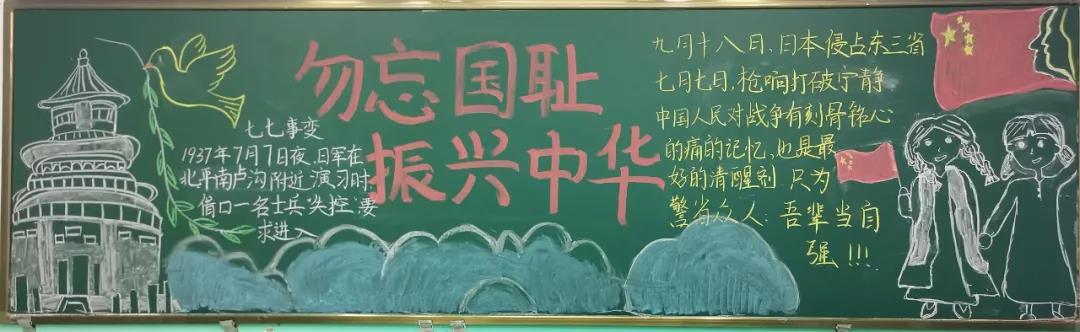 勿忘国耻
振兴中华
七七事变
1937年7月7日夜、日军在
北平南卢沟附近演习时
借口一名士兵"失控"、要
求进入
九月十八日、日本侵占东三省
七月七日、枪响打破宁静.
中国人民对战争有刻骨铭心
的痛的记忆,也是最
好的清醒剂 只为
警省众人:吾辈当自
强!!!